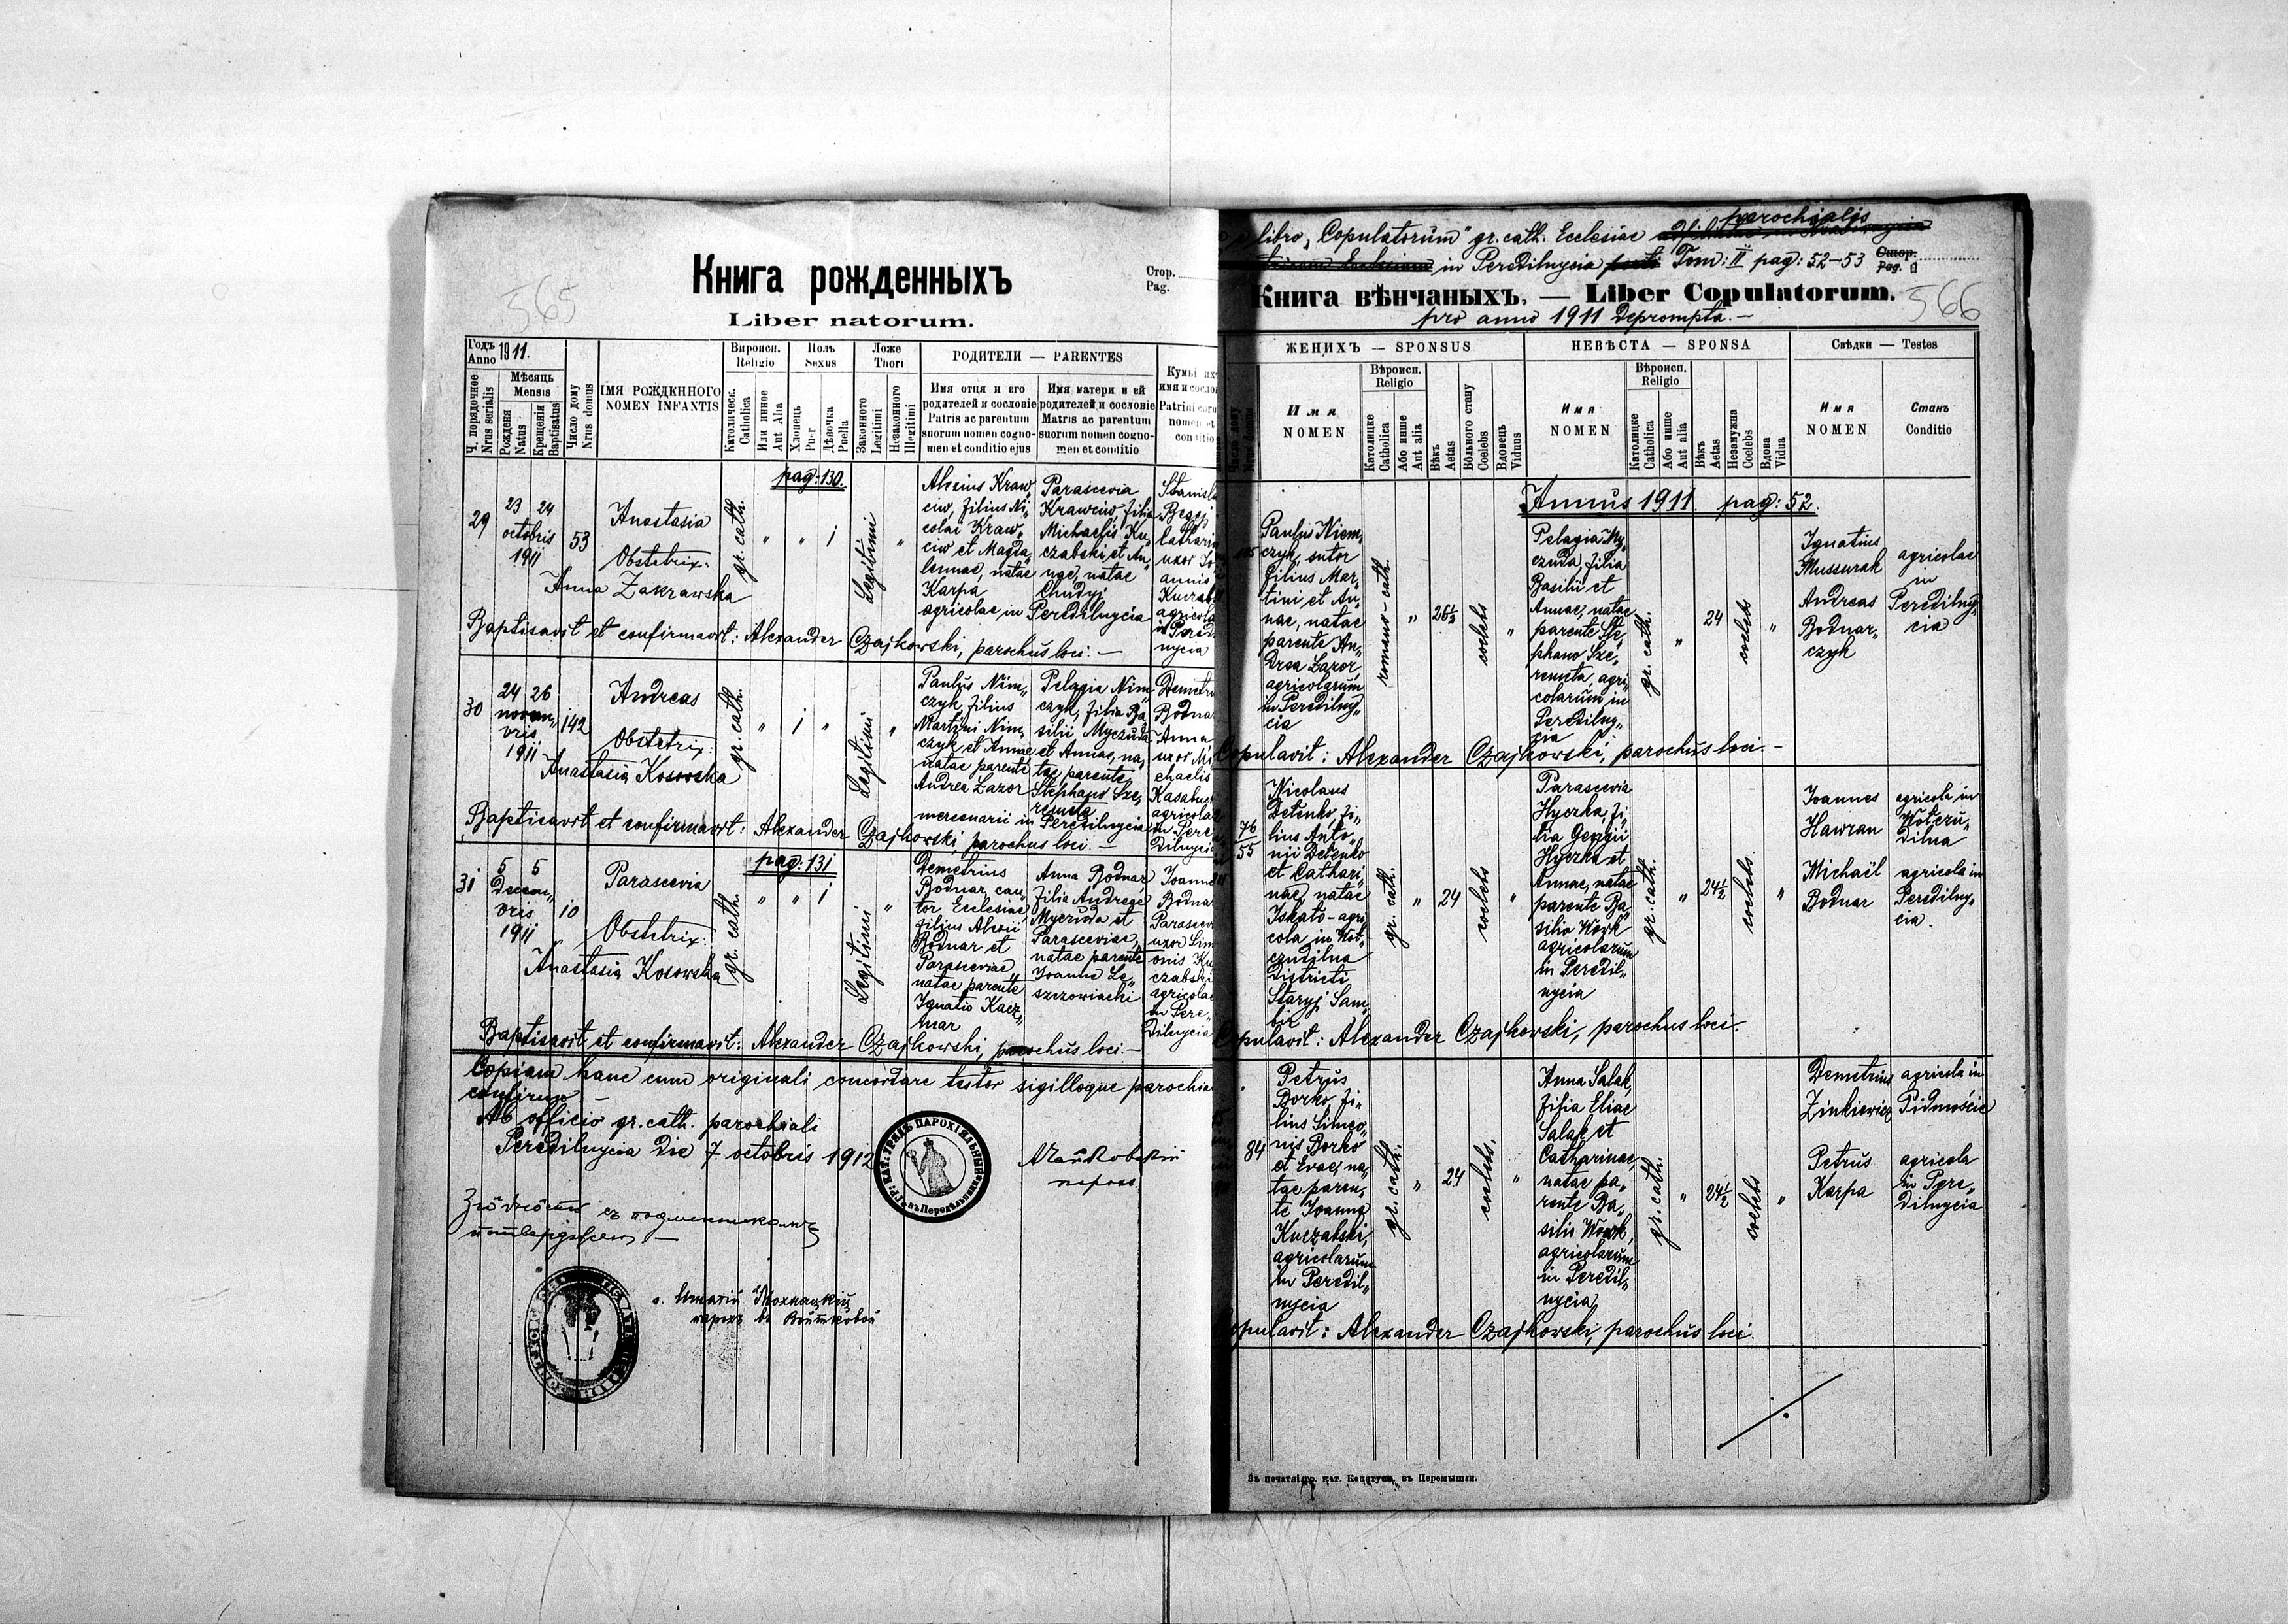 565
Книга рожденныхъ
Стор.
Pag.
Liber natorum.
Годъ
Anno 1911.
Мѣсяць
Mensis
Ч. порядочное
Nrus serialis
Рожденя
Natus
Крещенія
Baptisatus
Число дому
Nrus domus
ІМЯ РОЖДЕННОГО
NOMEN INFANTIS
Вироисп.
Religio
Католическ.
Catholica
Или инное
Aut Alia
Полъ
Sexus
Хлопець
Puer
Дѣвочка
Puella
Ложе
Thori
Законного
Legitimi
Незаконного
Illegitimi
РОДИТЕЛИ — PARENTES
Имя отця и его
родителей и сословіе
Patris ac parentum
suorum nomen cogno-
men et conditio ejus
Имя матери и ей
родителей и сословіе
Matris ac parentum
suorum nomen cogno-
men et conditio
Кумы ихъ
имя и сосло
Patrini
nomen et
conditio
pag: 130.
29
23 24
octobris
1911
53
Anastasia
Obstetrix:
Anna Zakrawska
gr. cath.
" " 1
Legitimi
"
Alexius Kraw„
ciw, filius Ni„
colai Kraw„
ciw et Magda„
lennae, natae
Karpa
agricolae in Peredilnycia
Parascevia
Krawciw, filia
Michaelis Ku„
czabski, et An„
nae, natae
Chudyj
Baptisavit et confirmavit: Alexander Czajkowski, parochus loci. —
30
24 26
novem„
vris
1911
142
Andreas
Obstetrix:
Anastasia Kosowska
gr. cath.
" 1 "
Legitimi
"
Paulus Nim„
czyk, filius
Martini Nim„
czyk et Annae
natae parente
Andrea Lazor
mercenarii in Peredilnycia
Pelagia Nim„
czyk, filia Ba„
silii Myczuda
et Annae, na„
tae parente
Stephano Sze„
remeta
Anna
uxor Mi
chaelis
Baptisavit et confirmavit: Alexander Czajkowski, parochus loci. —
pag: 131
31
5 5
Decem„
vris
1911
10
Parascevia
Obstetrix:
Anastasia Kosowska
gr. cath.
" " 1
Legitimi
"
Demetrius
Bodnar, can„
tor Ecclesiae,
filius Alexii
Bodnar et
Parasceviae,
natae parente
Ignatio Kacz„
mar
Anna Bodnar
filia Andreae
Myczuda et
Parasceviae,
natae parente
Joanne Le„
szczowiachi
Baptisavit et confirmavit: Alexander Czajkowski, parochus loci. —
Copiam hanc cum originali concordare testor sigilloque parochia
confirmo —
Ab officio gr. cath. parochiali
Peredilnycia die 7. octobris 1912
566
libro „Copulatorum" gr. cath. Ecclesiae parochialis
in Peredilnycia Tom: II pag: 52–53
Стор.
Pag.
Книга вѣнчаныхъ. — Liber Copulatorum.
pro anno 1911 deprompta. —
ЖЕНИХЪ — SPONSUS
НЕВѢСТА — SPONSA
Свѣдки — Testes
Имя
NOMEN
Вѣроисп.
Religio
Католицке
Catholica
Або инше
Aut alia
Вѣкъ
Aetas
Вольного стану
Coelebs
Вдовець
Vidus
Имя
NOMEN
Вѣроисп.
Religio
Католицке
Catholica
Або инше
Aut alia
Вѣкъ
Aetas
Незамужна
Coelebs
Вдова
Vidua
Имя
NOMEN
Станъ
Conditio
Annus 1911. pag: 52.
Paulus Niem„
czyk, sutor
filius Mar„
tini et An„
nae, natae
parente An„
drea Lazor,
agricolarum
in Peredilny„
cia
romano-cath.
"
26½
coelebs
"
Pelagia My„
czuda, filia
Basilii et
Annae, natae
parente Ste„
phano Sze„
remeta, agri„
colarum in
Peredilny„
cia
gr. cath.
"
24
coelebs
"
Ignatius
Mussurak
Andreas
Bodnar„
czyk
agricolae
in
Peredilny„
cia
Copulavit: Alexander Czajkowski, parochus loci —
76
55
Nicolaus
Detenko, fi„
lius Anto„
nii Detenko
et Cathari„
nae, natae
Iskato – agri„
cola in Wol„
czudilna
districti
Staryj Sam„
bir
gr. cath.
"
24
coelebs
"
Parascevia
Hyczka, fi„
lia Georgii
Hyczka et
Annae, natae
parente Ba„
silio Wowk
agricolarum
in Peredil„
nycia
gr. cath.
"
24½
coelebs
"
Joannes
Hawran
Michaël
Bodnar
agricola in
agricola in
Peredilny„
cia.
Copulavit: Alexander Czajkowski, parochus loci.
84
Petrus
Borko, fi„
lius Simeo„
nis Borko
et Evae, na„
tae paren„
te Joanne
Kuczabski,
agricolarum
in Peredil„
nycia
gr. cath.
"
24
coelebs.
"
Anna Salak,
filia Eliae
Salak et
Catharinae,
natae pa„
rente Ba„
silio Wowk,
agricolarum
in Peredil„
nycia
gr. cath.
"
24½
coelebs
"
Demetrius
Zinkiewicz
Petrus
Karpa
agricola in
Pidmoście
agricola
in Pere„
dilnycia
Copulavit: Alexander Czajkowski, parochus loci.